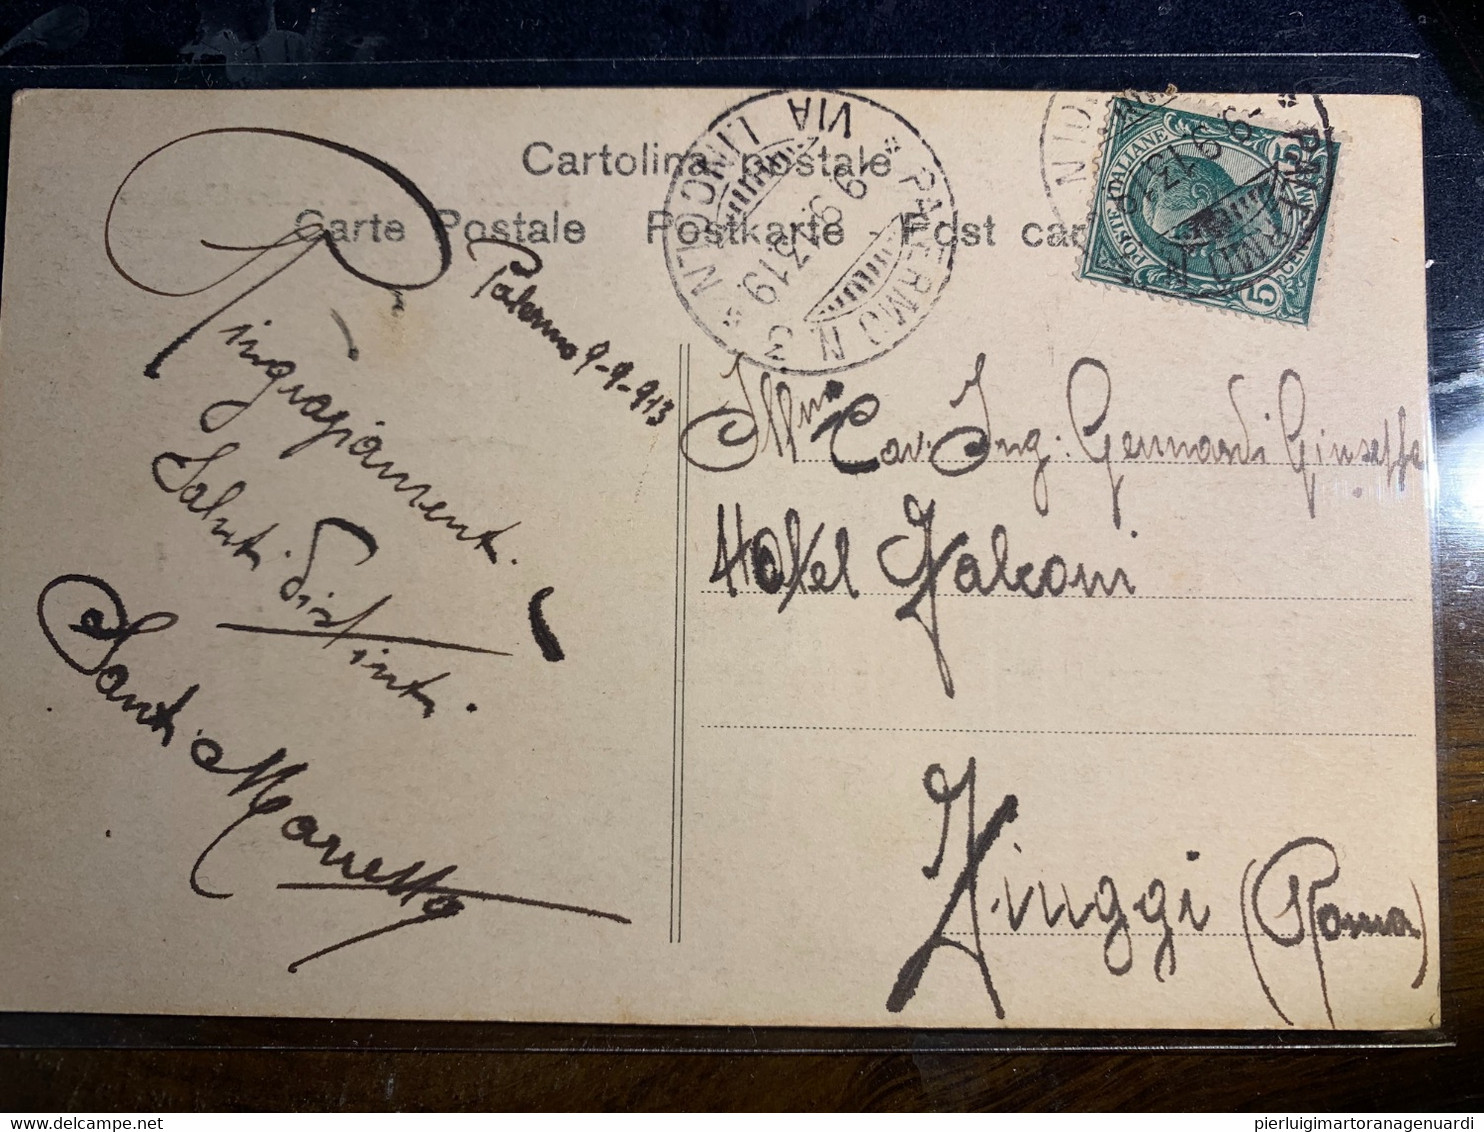 Cartolina postale
Carte Postale Postkarte - Post card
Palermo 9-9-913
Ringraziamenti
Saluti distinti
Santi
Ill.mo Cav. Ing. Gennardi Giuseppe
Hotel Falconi
Fiuggi (Roma)
PALERMO N. 3
VIA LINCOLN
9.9.13 19
POSTE ITALIANE
CENT. 5
5
pierluigimartoranagenuardi